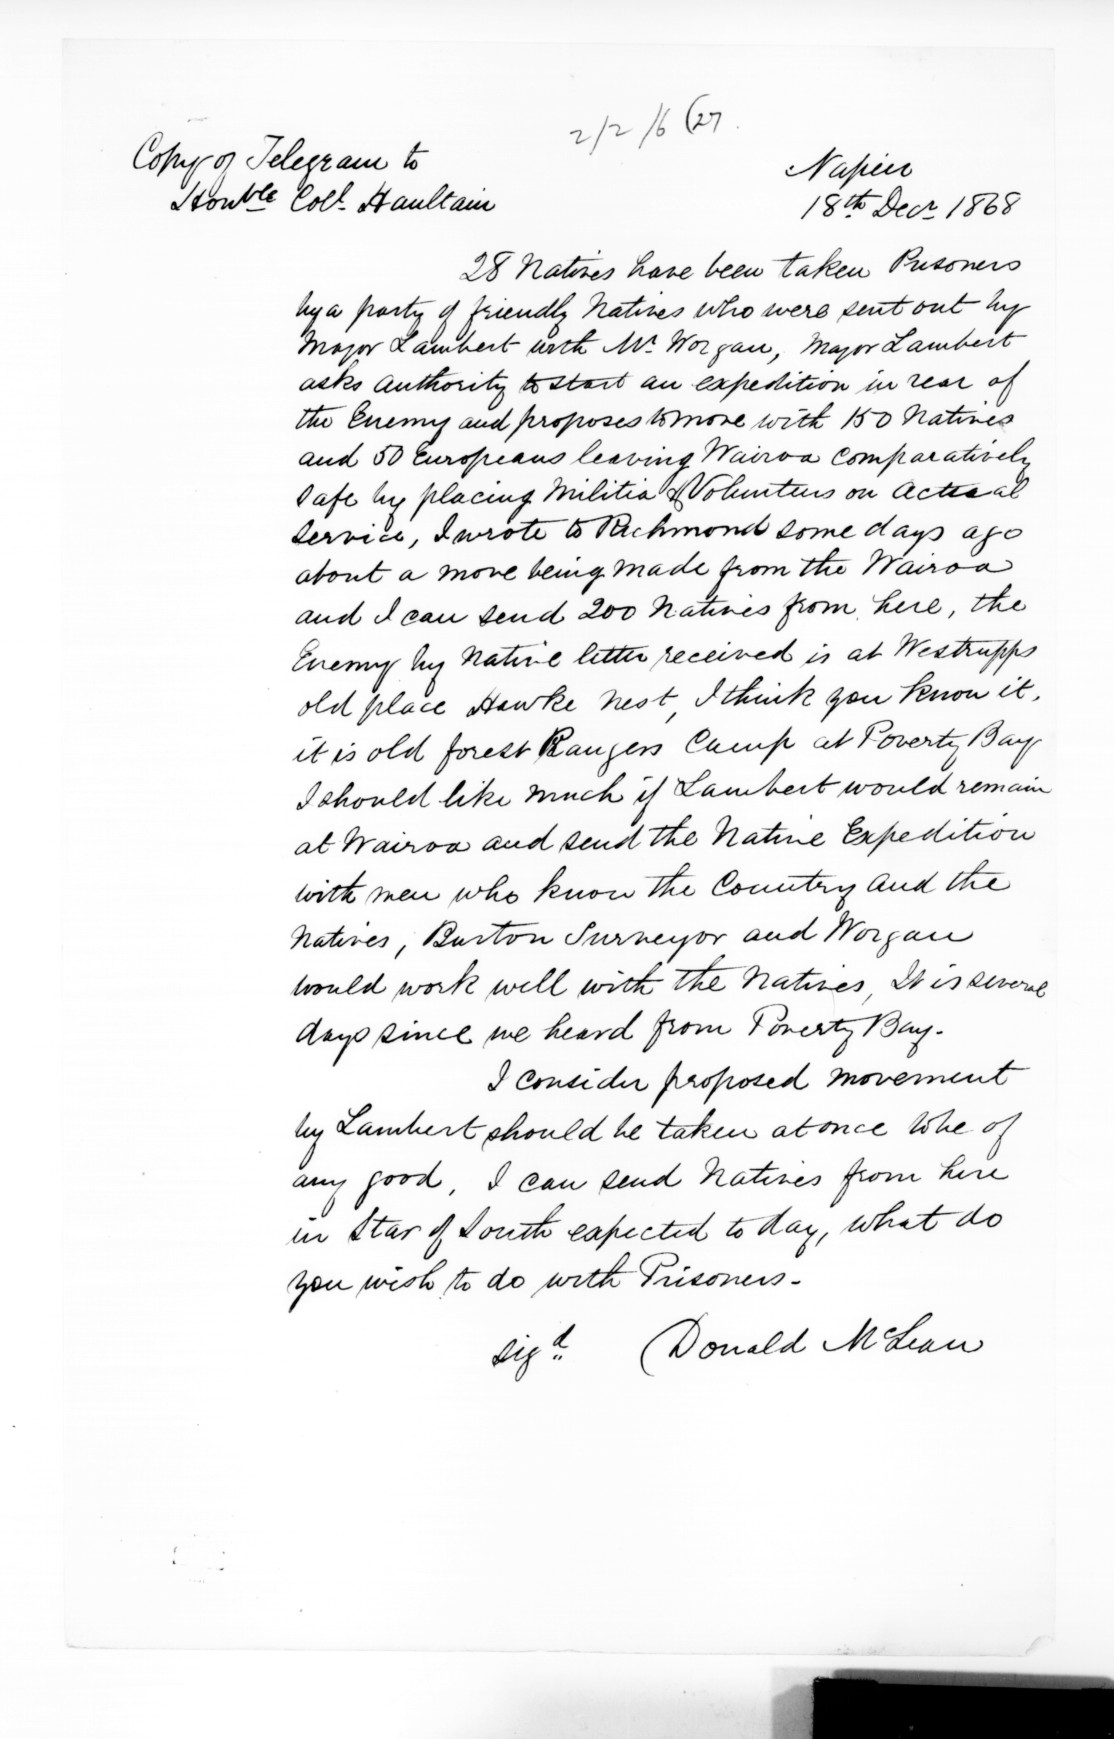 2/2/6 (27.
Copy of Telegram to
Honble Coll. Haultain
Napier
18th Decr 1868
28 Natives have been taken Prisoners
by a party of friendly Natives who were sent out by
Major Lambert with Mr Worgan, Major Lambert
asks authority to start an expedition in rear of
the Enemy and proposes to move with 150 Natives
and 50 Europeans leaving Wairoa comparatively
safe by placing Militia & Volunteers on Actual
service, I wrote to Richmond some days ago
about a move being made from the Wairoa
and I can send 200 Natives from here, the
Enemy by Native letter received is at Westrupps
old place Hawke Nest, I think you know it,
it is old forest Rangers Camp at Poverty Bay
I should like much if Lambert would remain
at Wairoa and send the Native Expedition
with men who know the Country and the
Natives, Burton Surveyor and Worgan
would work well with the Natives, It is several
days since we heard from Poverty Bay.
I consider proposed movement
by Lambert should be taken at once to be of
any good, I can send Natives from here
in Star of South expected to day, what do
you wish to do with Prisoners-
sigd (Donald McLean